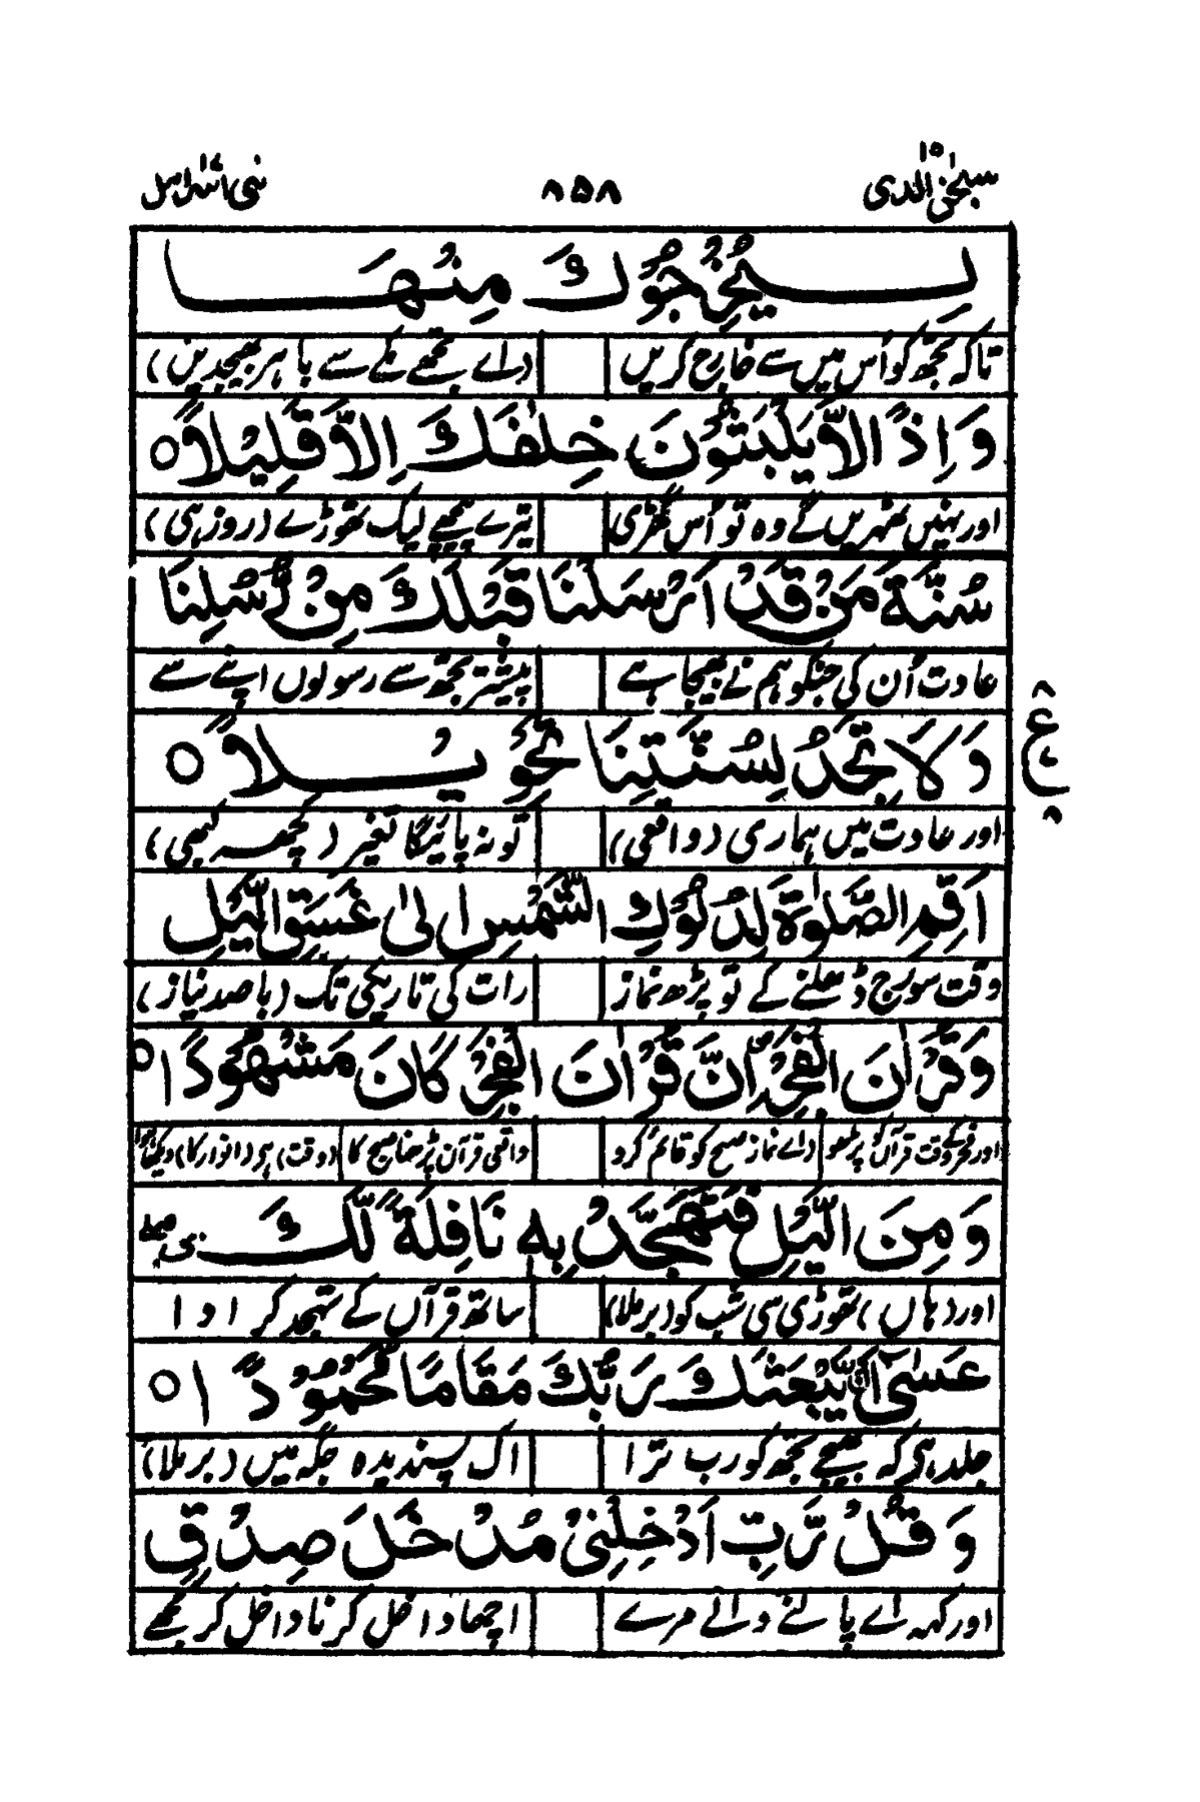 سبحٰن الذی ۱۵ ۸۵۸ بنی اسراءیل ۱۷
لِيُخْرِجُوْكَ مِنْهَا
تاکہ تجھ کو اُس میں سے خارج کریں (اے تجھے مکے سے باہر بھیجدیں)
وَاِذًا لَّا يَلْبَثُوْنَ خِلٰفَكَ اِلَّا قَلِيْلًا ○
اور نہیں ٹھہریں گے وہ تو اُس گھڑی تیرے پیچھے لیک تھوڑے (روز ہی)
سُنَّةَ مَنْ قَدْ اَرْسَلْنَا قَبْلَكَ مِنْ رُّسُلِنَا
عادت اُن کی جنکو ہم نے بھیجا ہے پیشتر تجھ سے رسولوں اپنے سے
وَلَا تَجِدُ لِسُنَّتِنَا تَحْوِيْلًا ○
ع ۸ ۸
اور عادت میں ہماری (واقعی) تو نہ پائیگا تغیر (کچھ کبھی)
اَقِمِ الصَّلٰوةَ لِدُلُوْكِ الشَّمْسِ اِلٰى غَسَقِ الَّيْلِ
وقت سورج ڈھلنے کے تو پڑھ نماز رات کی تاریکی تک (با صد نیاز)
وَقُرْاٰنَ الْفَجْرِ ؕ اِنَّ قُرْاٰنَ الْفَجْرِ كَانَ مَشْهُوْدًا ○
اور فجر کے وقت قرآں کو پڑھو (اے نماز صبح کو قائم کرو واقعی قرآن پڑھنا صبح کا (وقت) ہے (انوار کا) دیکھا ہوا
وَمِنَ الَّيْلِ فَتَهَجَّدْ بِهٖ نَافِلَةً لَّكَ
اور (ہاں) تھوڑی سی شب کو (برملا) ساتھ قرآں کے تہجد کر ادا
عَسٰٓى اَنْ يَّبْعَثَكَ رَبُّكَ مَقَامًا مَّحْمُوْدًا ○
جلد ہی کہ بھیجے تجھ کو رب ترا اک پسندیدہ جگہ میں (برملا)
وَقُلْ رَّبِّ اَدْخِلْنِيْ مُدْخَلَ صِدْقٍ
اور کہہ اے پالنے والے مرے اچھا داخل کرنا داخل کر مجھے